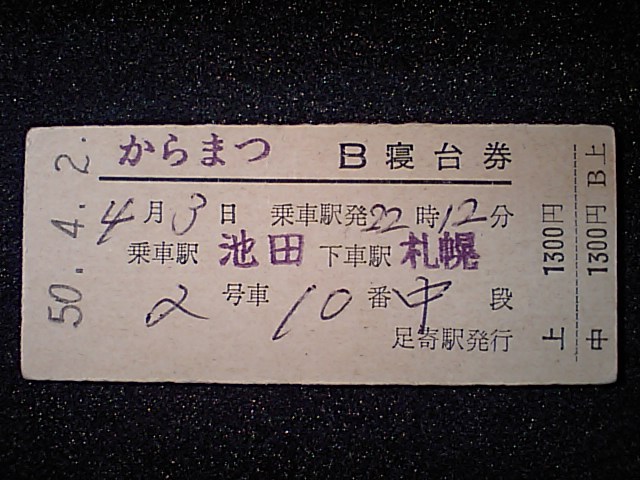 50.4.2.
からまつ B寝台券
4月3日 乗車駅発22時12分
乗車駅 池田 下車駅 札幌
2号車 10番中段
足寄駅発行
上 1300円
中 1300円 B上